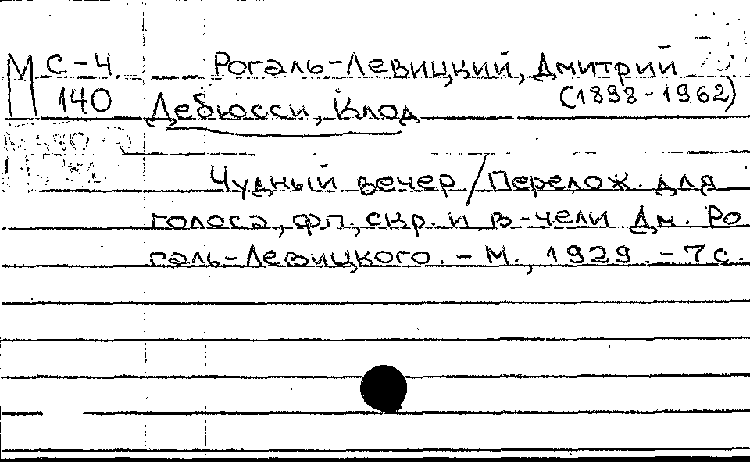 М С-4 Рогаль-Левицкий, Дмитрий
140 (1898-1962)
Дебюсси, Клод
Чудный вечер / Перелож. для
голоса, фп, скр. и в-чели Дм. Ро
галь-Левицкого. - М., 1929. - 7 с.